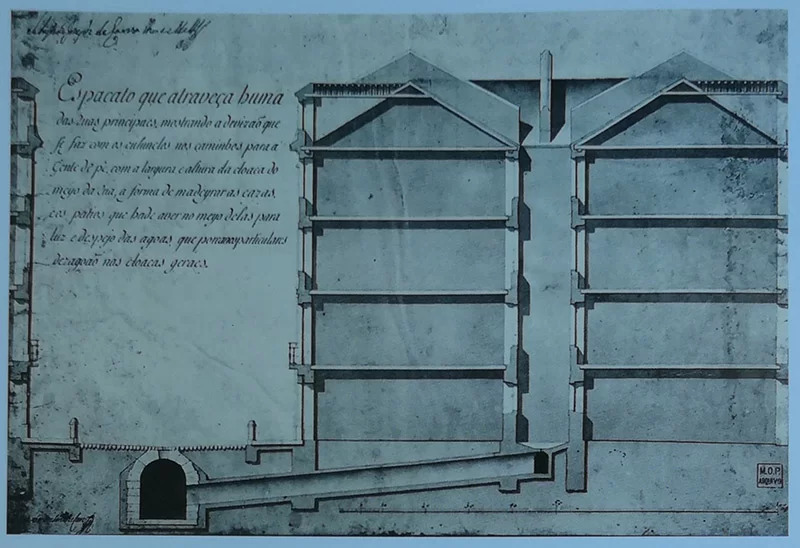 Espacato que atraveça huma
das 2uas principaes, mostrando a devizaõ que
se faz com os culunelos nos caminhos para a
Gente de pè, com a largura e altura da cloaca do
meyo da 2ua, a forma de madeyrar as cazas,
e os patios que hade aver no meyo delas para
luz e despejo das agoas, que por particulares
dezagoaõ nas cloacas geraes.
M.O.P.
ARQUIVO